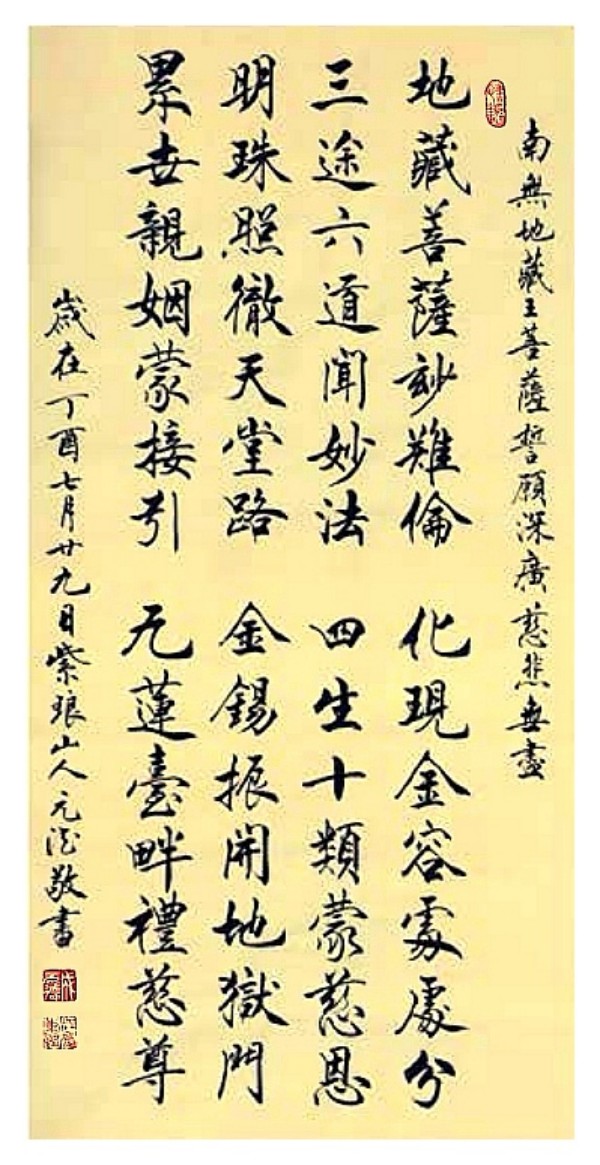 南無地藏王菩薩誓願深廣慈悲無盡
地藏菩薩玅難倫 化現金容處處分
三途六道聞妙法 四生十類蒙慈恩
明珠照徹天堂路 金錫振開地獄門
累世親姻蒙接引 九蓮臺畔禮慈尊
歲在丁酉七月廿九日紫琅山人元敬書